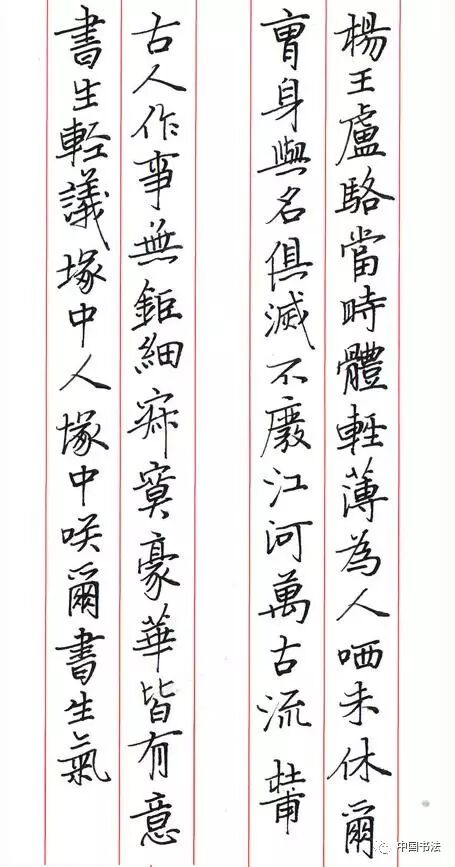 楊王盧駱當時體輕薄為人哂未休爾
曹身與名俱滅不廢江河萬古流 杜甫
古人作事無鉅細寂寞豪華皆有意
書生輕議塚中人塚中笑爾書生氣
中国书法